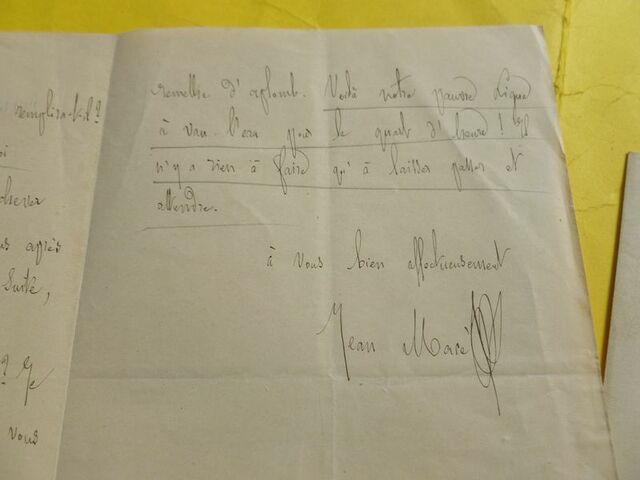 remplira-t-il?
us après
Suite,
? Je
vous
remettre d'aplomb. Voilà notre pauvre Ligue
à vau-l'eau pour le quart d'heure! Il
n'y a rien à faire qu'à laisser passer et
attendre.
à vous bien affectueusement
Jean Macé